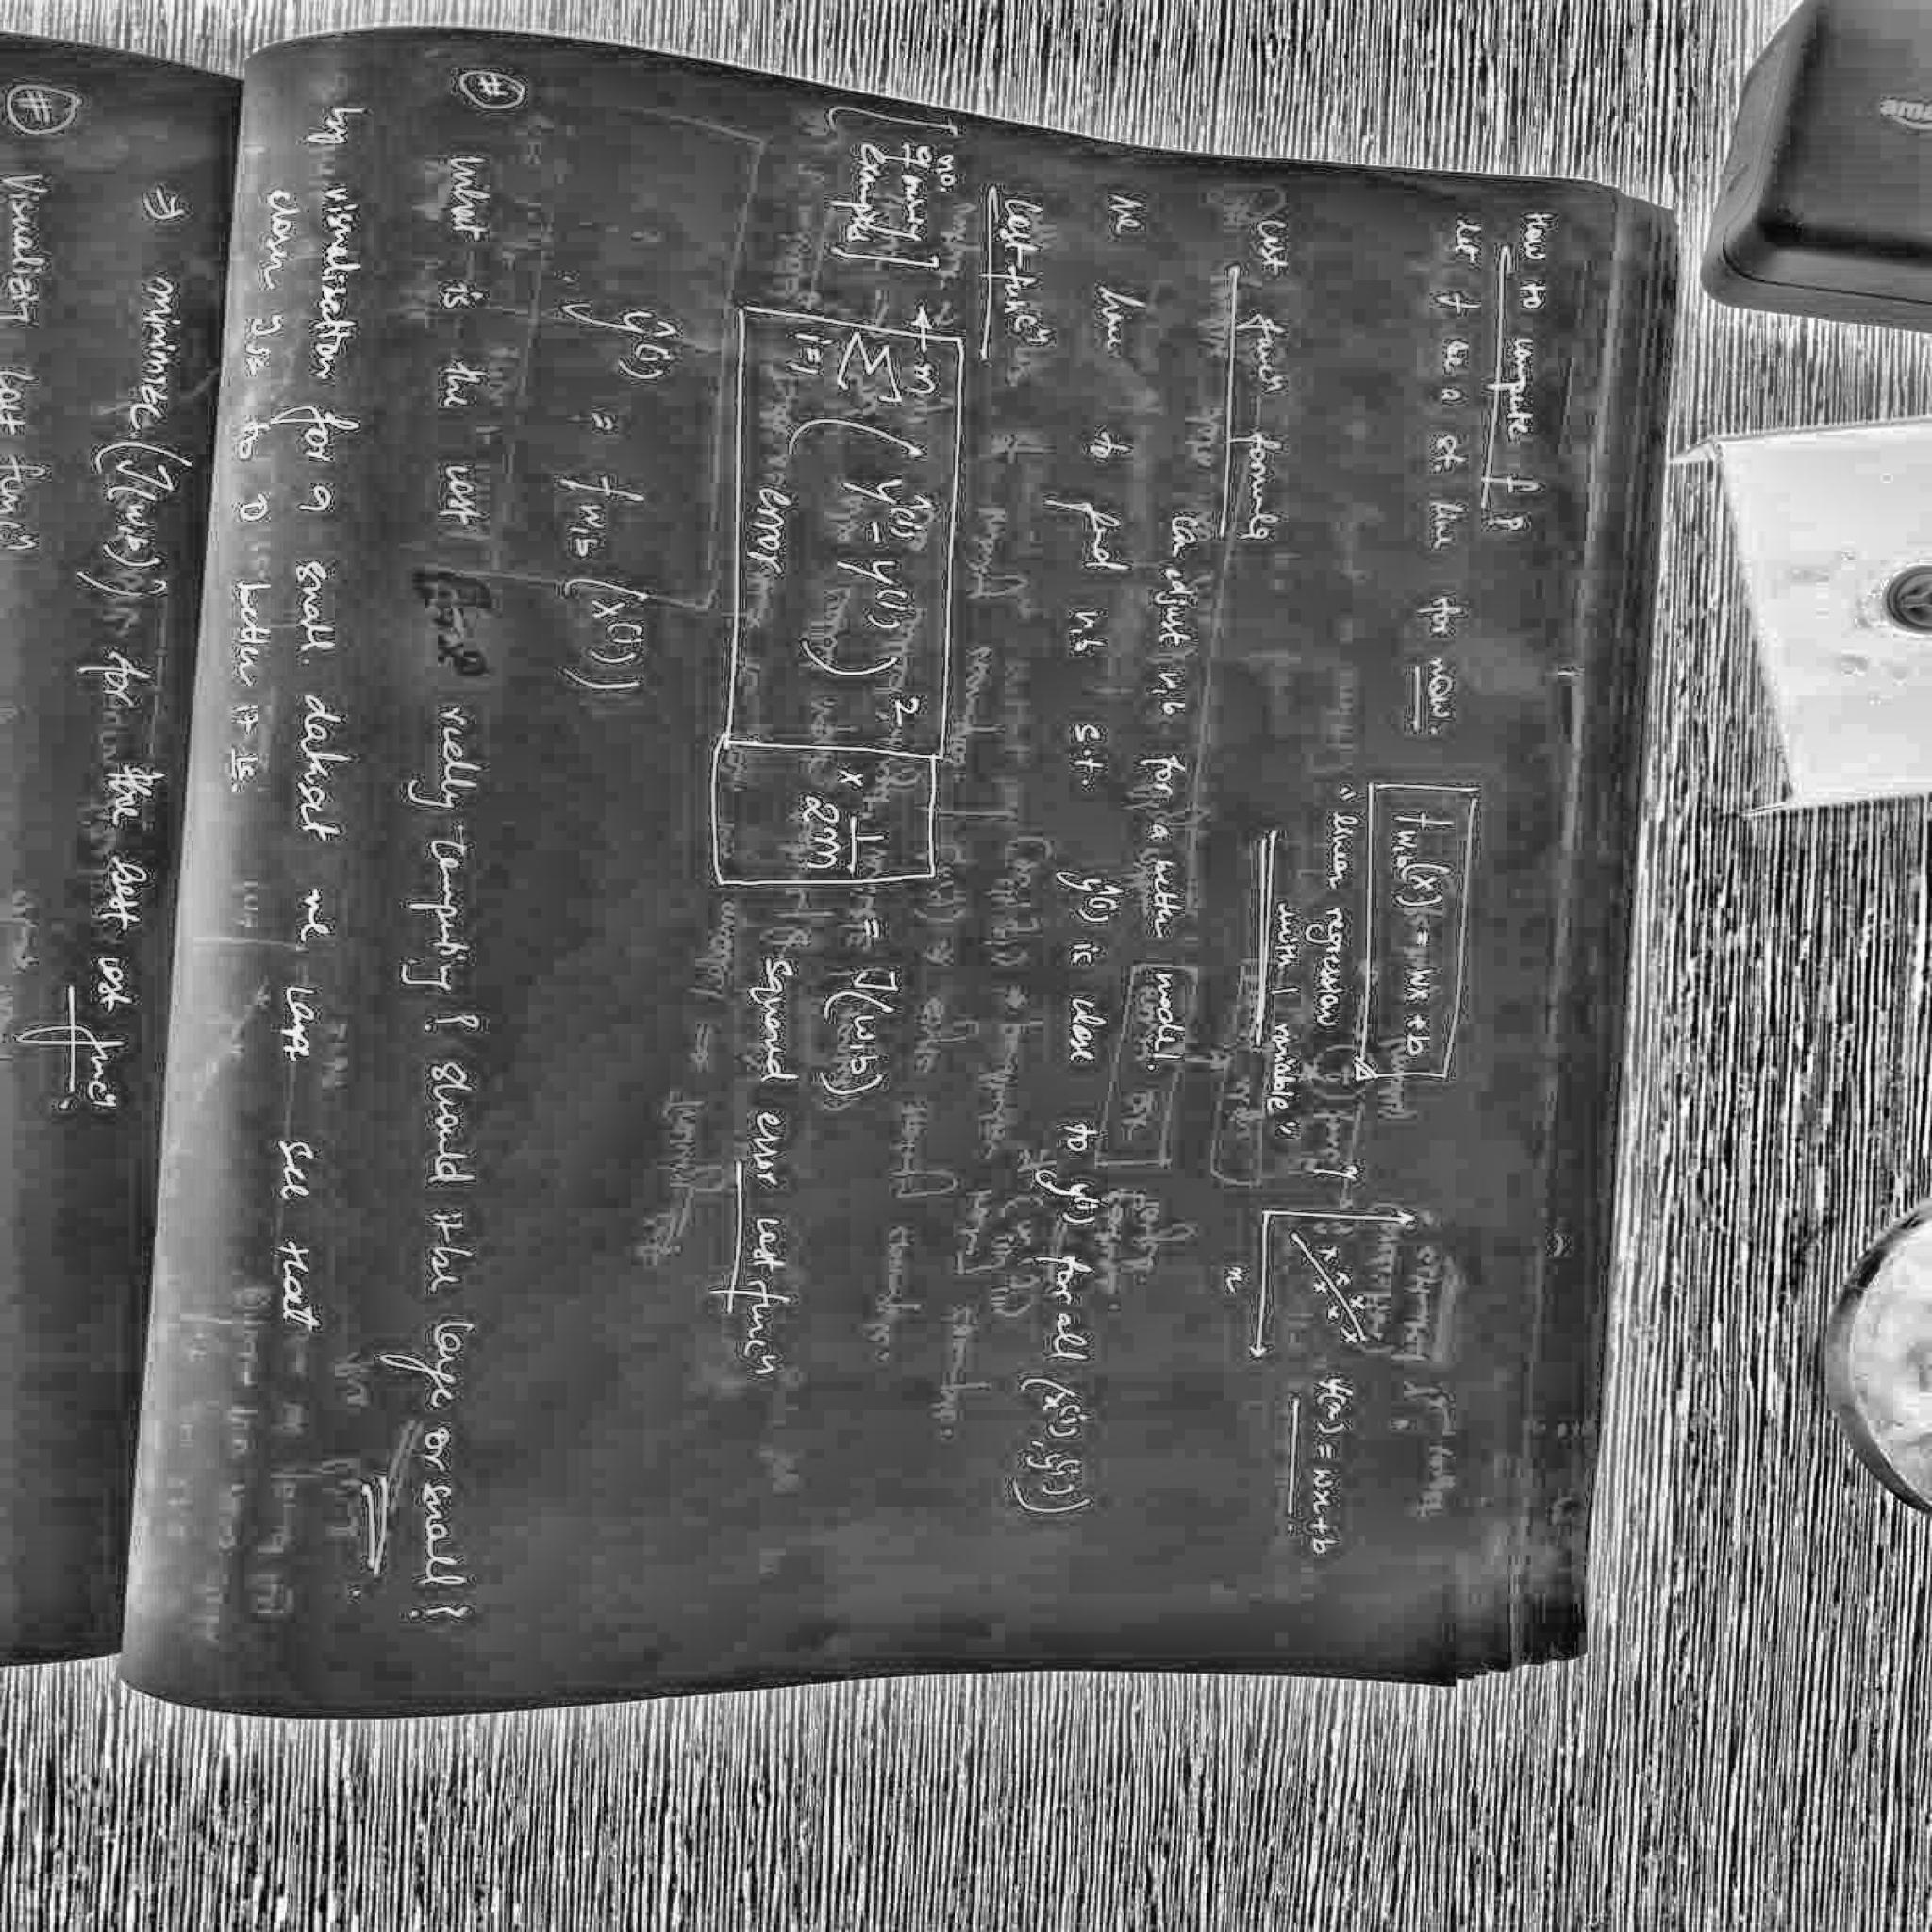 How to compute f?
let f be a st. line for now.
f w,b(x) = wx + b
"linear regression
with 1 variable"
f(x) = wx+b
x
Cost funcn formula
can adjust w,b for a better model.
we have to find w,b s.t. ŷ(i) is close to y(i) for all (x(i), y(i))
Cost funcn
no.
m
Σ ( ŷ(i) - y(i) )² × 1/2m = J(w,b)
i=1
error
squared error cost funcn
ŷ(i) = f w,b (x(i))
# what is the cost really computing? should it be large or small?
by visualisation for a small dataset we can see that
closer J is to 0 better it is.
⇒ minimize (J(w,b)) for the best cost funcn.
# Visualizing cost funcn
ama